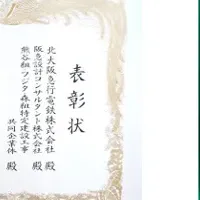 表彰状
北大阪急行電鉄株式会社 殿
阪急設計コンサルタント株式会社 殿
熊谷組・フジタ・森組特定建設工事
共同企業体 殿